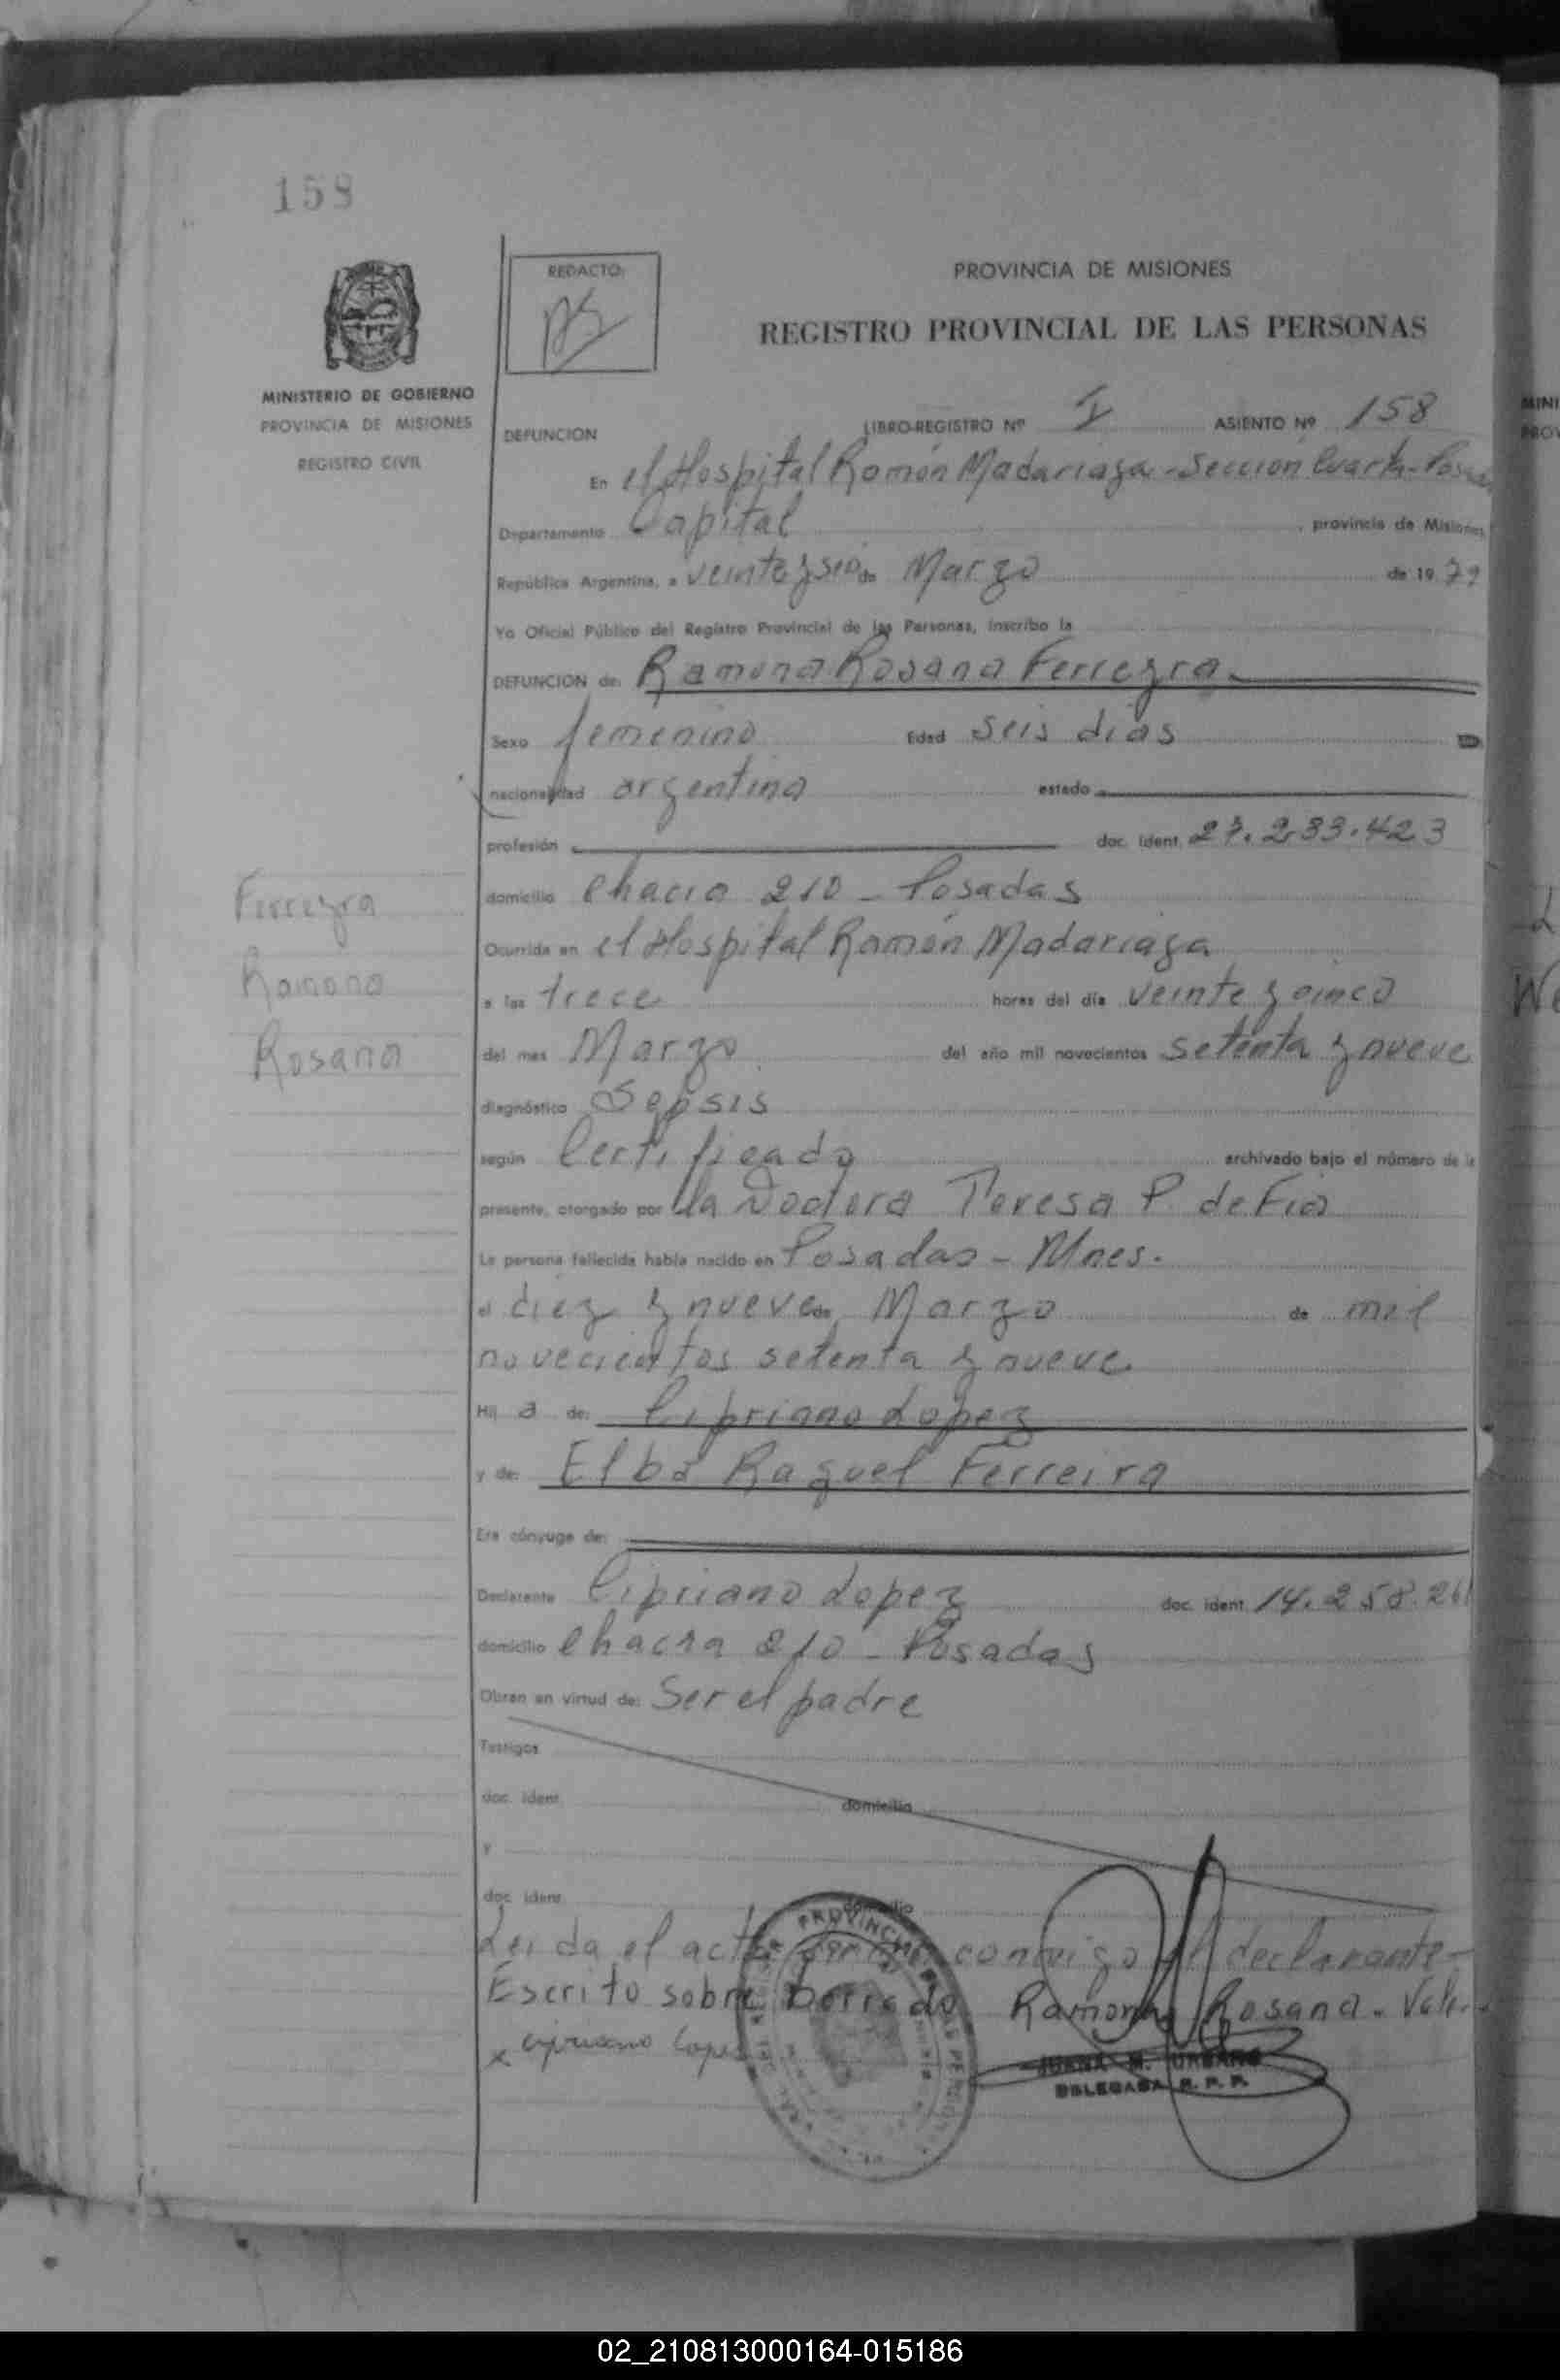 158
REDACTO:
PROVINCIA DE MISIONES
REGISTRO PROVINCIAL DE LAS PERSONAS
MINISTERIO DE GOBIERNO
PROVINCIA DE MISIONES
REGISTRO CIVIL
DEFUNCION LIBRO-REGISTRO Nº I ASIENTO Nº 158
En el Hospital Ramón Madariaga - Sección Cuarta -
Departamento Capital provincia de Misiones
República Argentina, a veinteyseis de Marzo de 19 79
Yo Oficial Público del Registro Provincial de las Personas, inscribo la
DEFUNCION de: Ramona Rosana Ferreyra
Sexo femenino Edad seis dias
nacionalidad argentina estado
profesión doc. ident. 27.233.423
domicilio Chacra 210 - Posadas
Ocurrida en el Hospital Ramón Madariaga
a las trece horas del día veinte y cinco
del mes Marzo del año mil novecientos setenta y nueve
diagnóstico Sepsis
según Certificado archivado bajo el número de la
presente, otorgado por la Doctora Teresa P. de
La persona fallecida había nacido en Posadas - Mnes.
el diez y nueve de Marzo de mil
novecientos setenta y nueve
Hij a de: Cipriano Lopez
y de: Elba Raquel Ferreira
Era cónyuge de:
Declarante Cipriano Lopez doc. ident. 14.258.261
domicilio Chacra 210 - Posadas
Obran en virtud de: Ser el padre
Testigos
doc. ident. domicilio
y
doc. ident. domicilio
Leida el acta firma conmigo el declarante-
Escrito sobre borrado Ramona Rosana. Vale.
x cipriano Lopez
JUANA M. URBANO
DELEGADA R. P. P.
Ferreyra
Ramona
Rosana
MINI
PROV
02_210813000164-015186